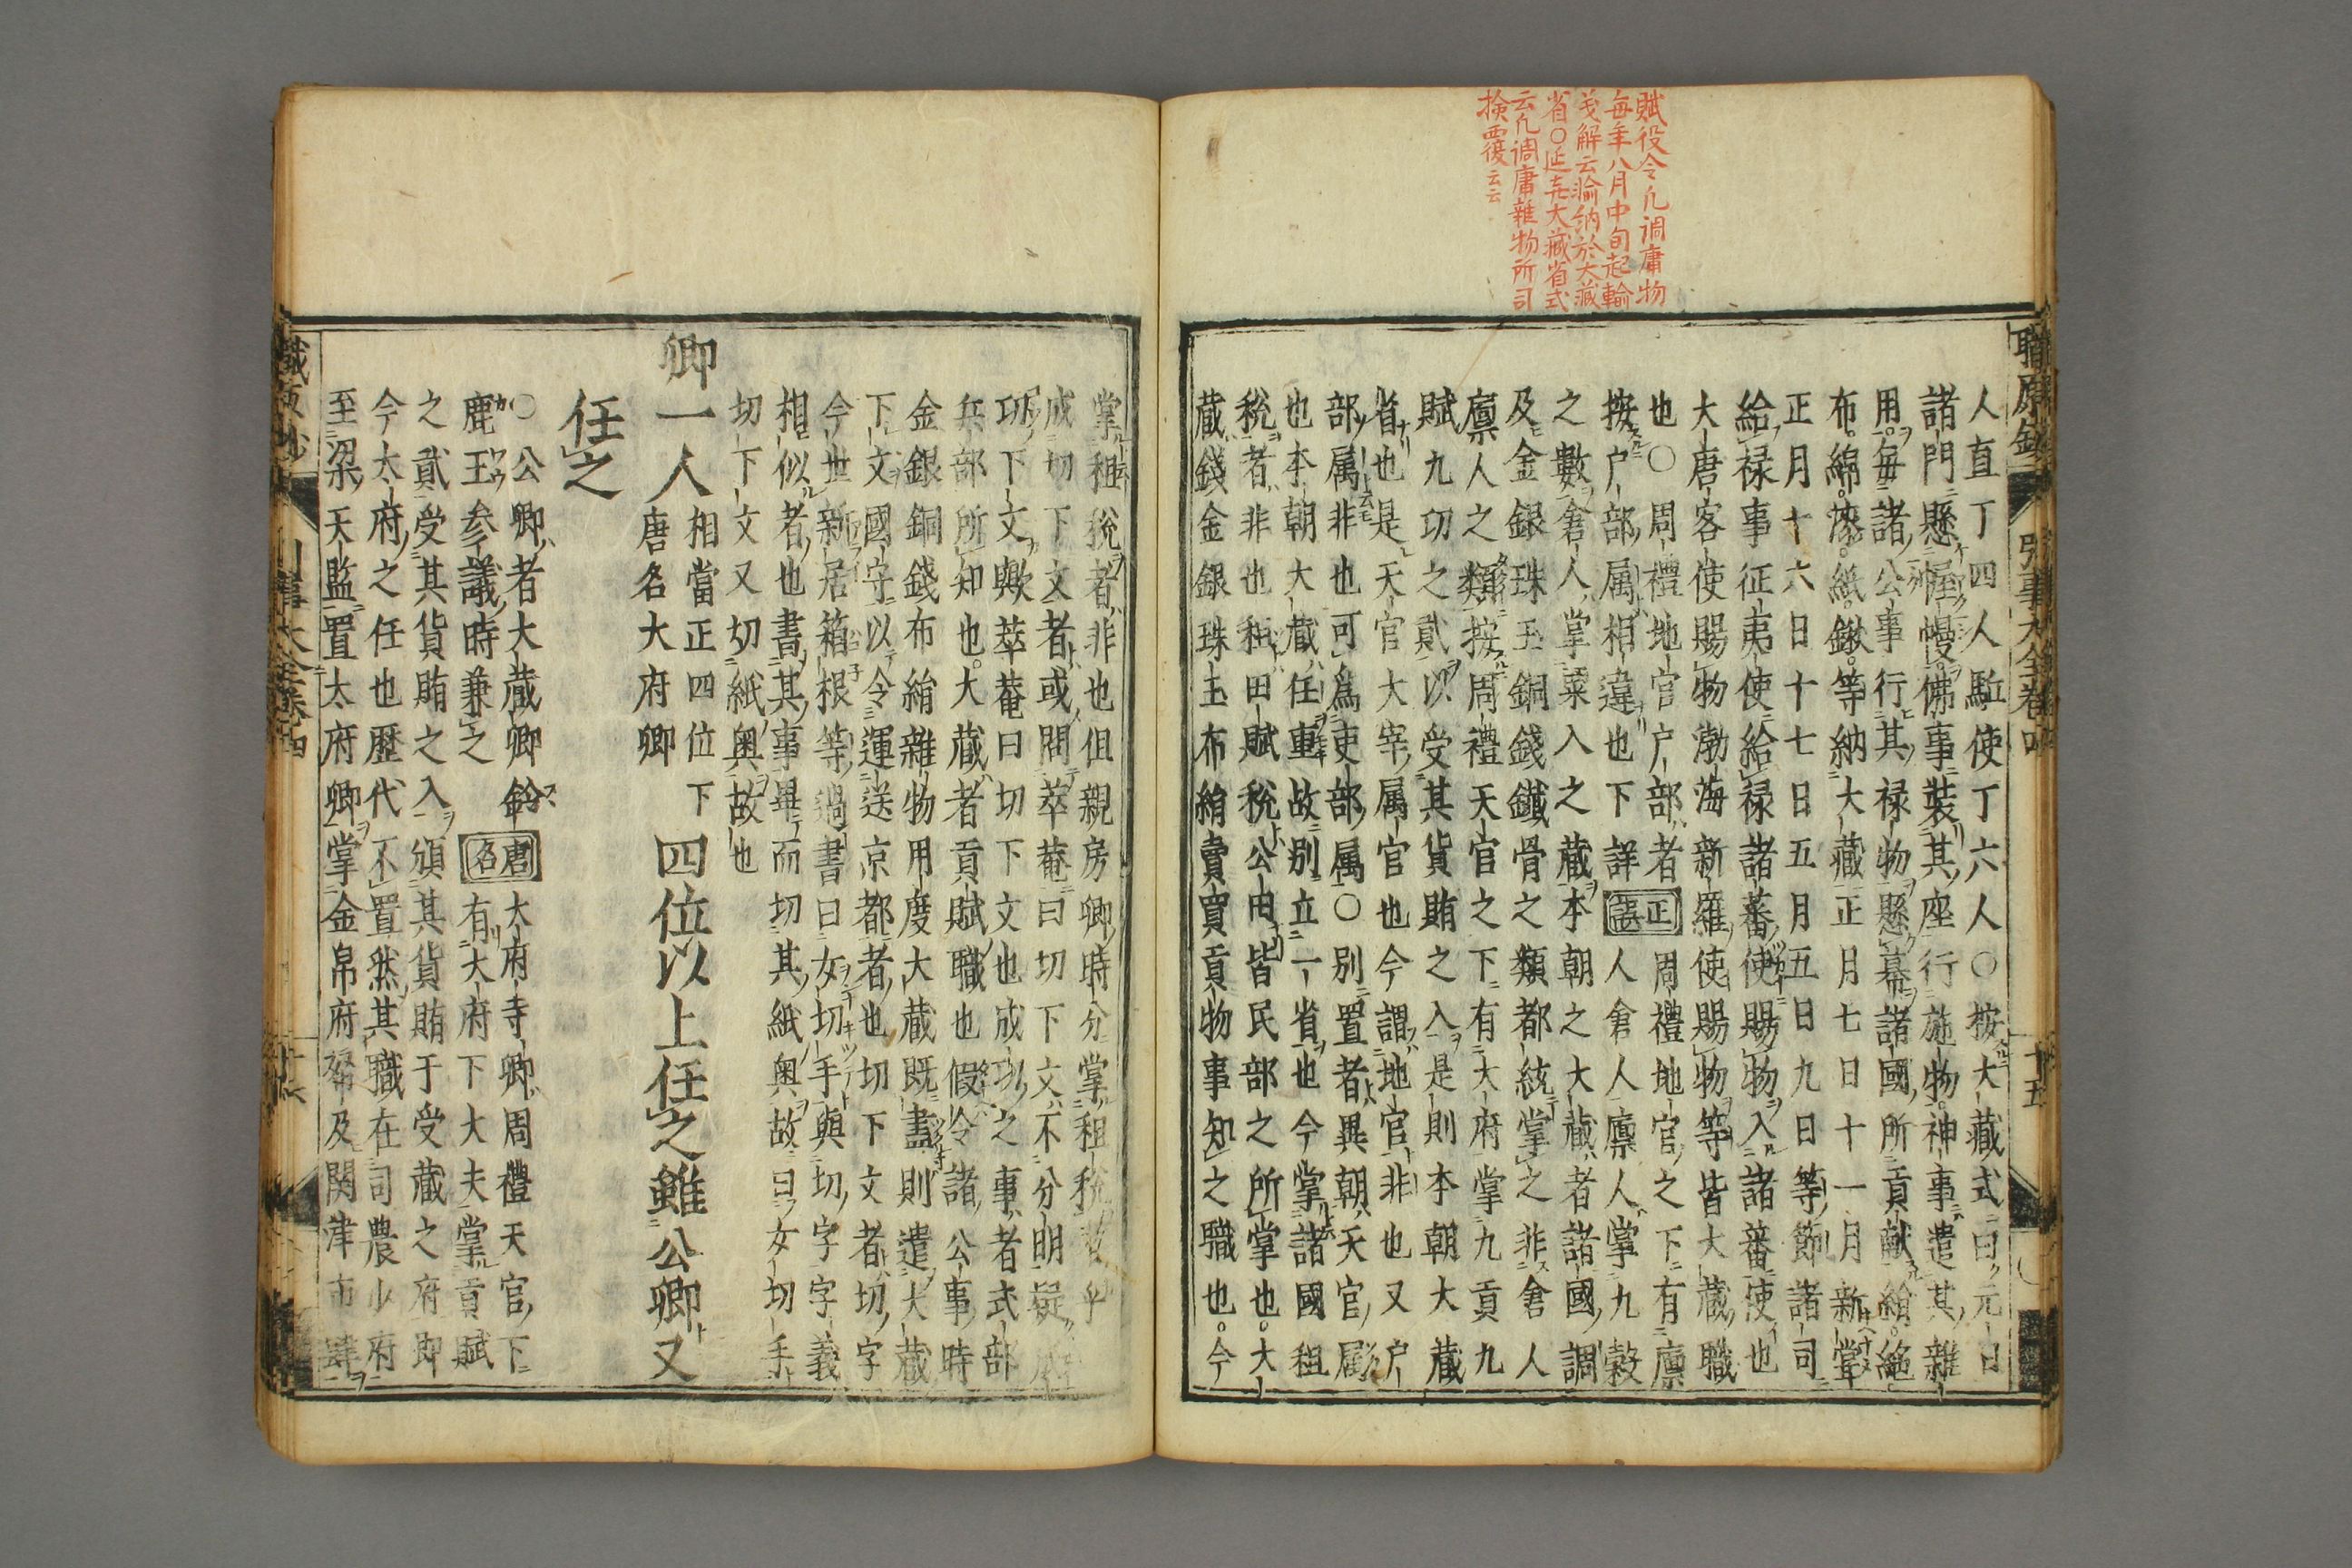 賦役令凡調庸物
每年八月中旬起輸
義解云輸納於大藏
省○延喜大藏省式
云凡調庸雜物所司
捡覆云云
職原鈔
引事大全卷四
十五
人直丁四人駈使丁六人○按大藏式曰元日
諸門懸幄幔佛事裝其座行施物神事遣其雜
用每諸公事行其禄物懸幕諸國所貢献給絁
布綿漆紙鍬等納大藏正月七日十一月新甞
正月十六日十七日五月五日九日等節諸司
給禄事征夷使給禄諸蕃使賜物入諸蕃使也
大唐客使賜物渤海新羅使賜物等皆大藏職
也○周禮地官户部者正周禮地官之下有廪
按户部属相違也下詳誤人倉人廪人掌九穀
之數倉人掌粟入之藏本朝之大藏者諸國調
及金銀珠玉銅錢鐵骨之類都統掌之非倉人
廪人之類按周禮天官之下有大府掌九貢九
賦九切之貳以受其貨賄之入是則本朝大藏
省也是天官大宰属官也今謂地官非也又户
部属非也可爲吏部属○別置者異朝天官属
也本朝大藏任重故別立一省也今掌諸國租
税者非也租田賦税公由皆民部之所掌也大
藏錢金銀珠玉布絹賣買貢物事知之職也今
掌租税者非也但親房卿時分掌租税
成切下文者或問萃菴曰切下文不分明疑
功下文歟萃菴曰切下文也成功之事者式部
兵部所知也大藏者貢賦職也假令諸公事時
金銀銅錢布絹雜物用度大藏既盡則遣大藏
下文國守以令運送京都者也切下文者切字
今世新居箱根等過書曰女切手與切字字義
相似者也書其事畢而切其紙奥故曰女切手
切下文又切紙奥故也
卿一人相當正四位下唐名大府卿四位以上任之雖公卿又
任之
○公卿者大藏卿鈴
鹿王参議時兼之
唐名
大府寺卿周禮天官下
有大府下大夫掌貢賦
之貳受其貨賄之入頒其貨賄于受藏之府即
今太府之任也歷代不置然其職在司農少府
至梁天監置太府卿掌金帛府帑及関津市肆
職原抄
引事大全卷四
十六